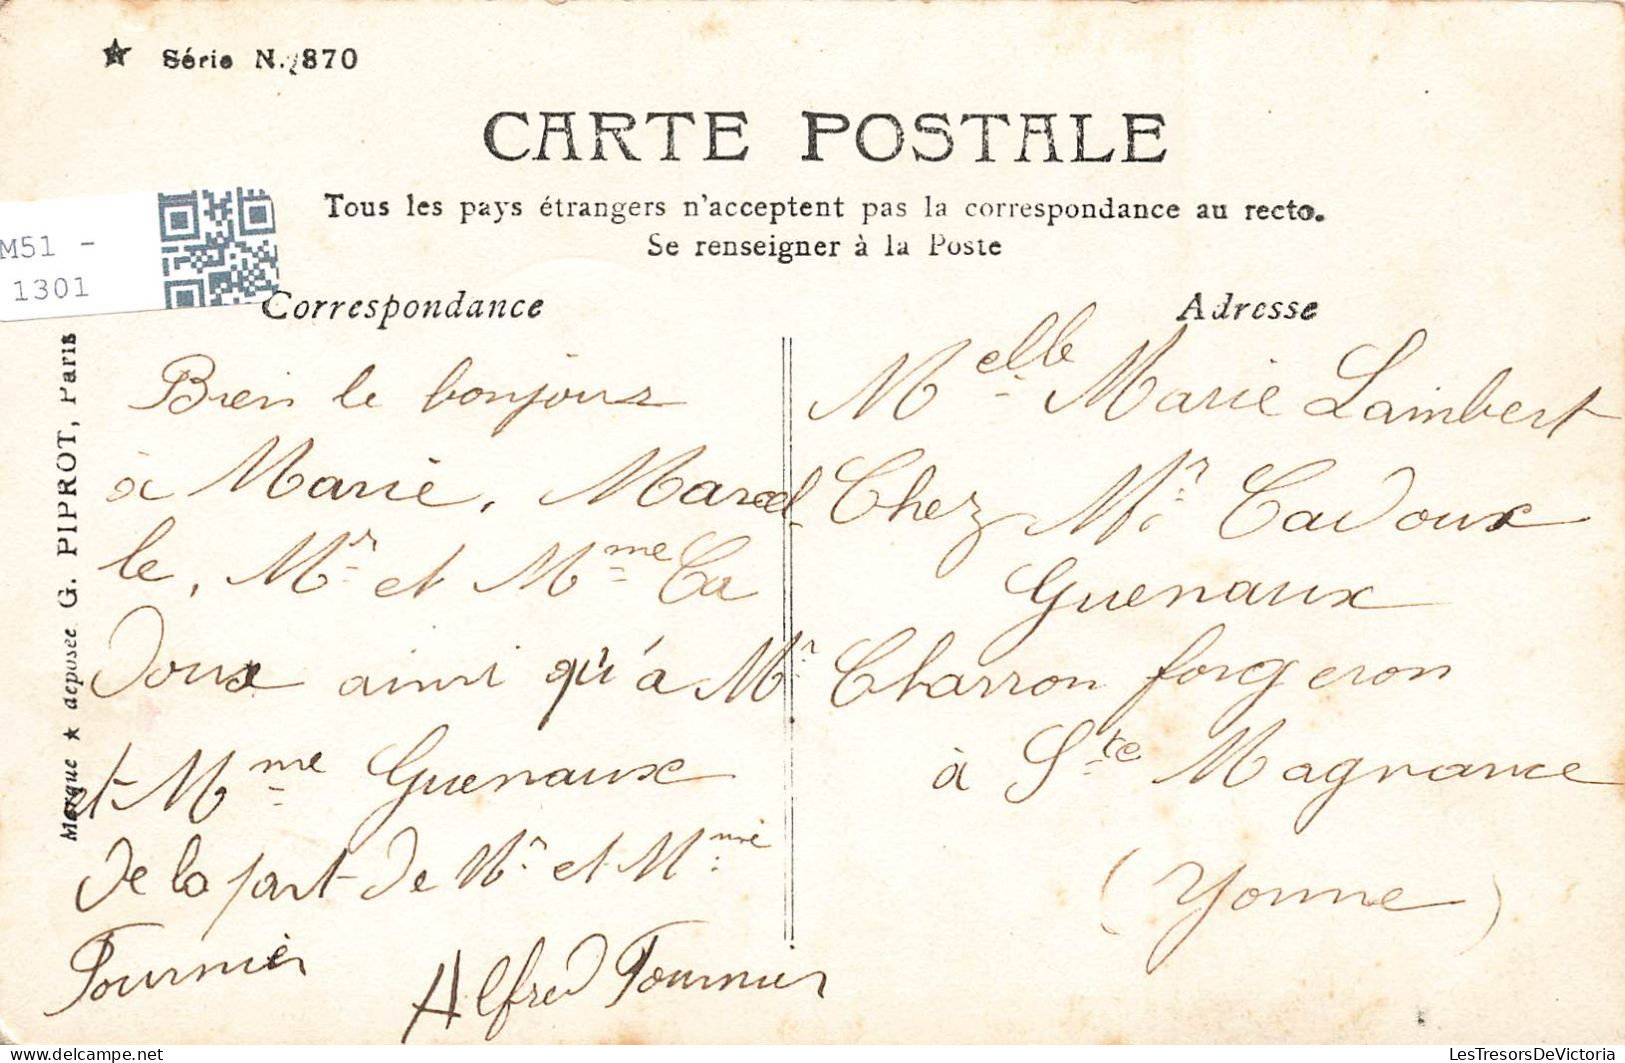 ★ Série N. 870
CARTE POSTALE
Tous les pays étrangers n'acceptent pas la correspondance au recto.
Se renseigner à la Poste
M51 -
1301
Correspondance
Bien le bonjour
à Marie, Marcel
le, Mr et Mme Ca
doux ainsi qu'à Mr
et Mme Guenaux
de la part de Mr et Mme
Fournier
Alfred Fournier
Adresse
Melle Marie Lambert
Chez Mr Cadoux
Guenaux
Charron forgeron
à Ste Magnance
(Yonne)
Marque ★ déposée G. PIPROT, Paris
LesTresorsDeVictoria